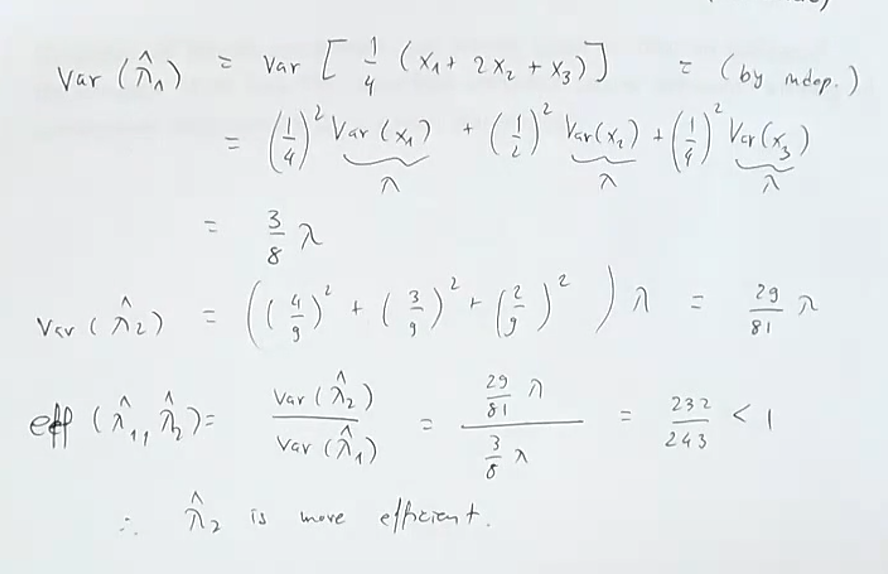 Var (λ̂₁) = Var [ 1/4 (x₁ + 2x₂ + x₃) ] = (by indep.)
= (1/4)² Var (x₁) + (1/2)² Var(x₂) + (1/4)² Var(x₃)
λ λ λ
= 3/8 λ
Var (λ̂₂) = ( (4/9)² + (3/9)² + (2/9)² ) λ = 29/81 λ
eff (λ̂₁, λ̂₂) = Var (λ̂₂) / Var (λ̂₁) = 29/81 λ / 3/8 λ = 232/243 < 1
∴ λ̂₂ is more efficient.